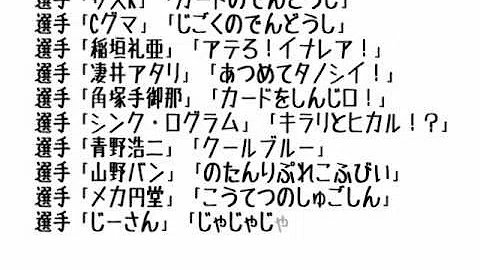 選手「Cグマ」「じごくのでんどうし」
選手「稲垣礼亜」「アテろ!イナレア!」
選手「凄井アタリ」「あつめてタノシイ!」
選手「角塚手御那」「カードをしんじロ!」
選手「シンク・ログラム」「キラリとヒカル!?」
選手「青野浩二」「クールブルー」
選手「山野バン」「のたんりぷれこふびい」
選手「メカ円堂」「こうてつのしゅごしん」
選手「じーさん」「じゃじゃじゃ